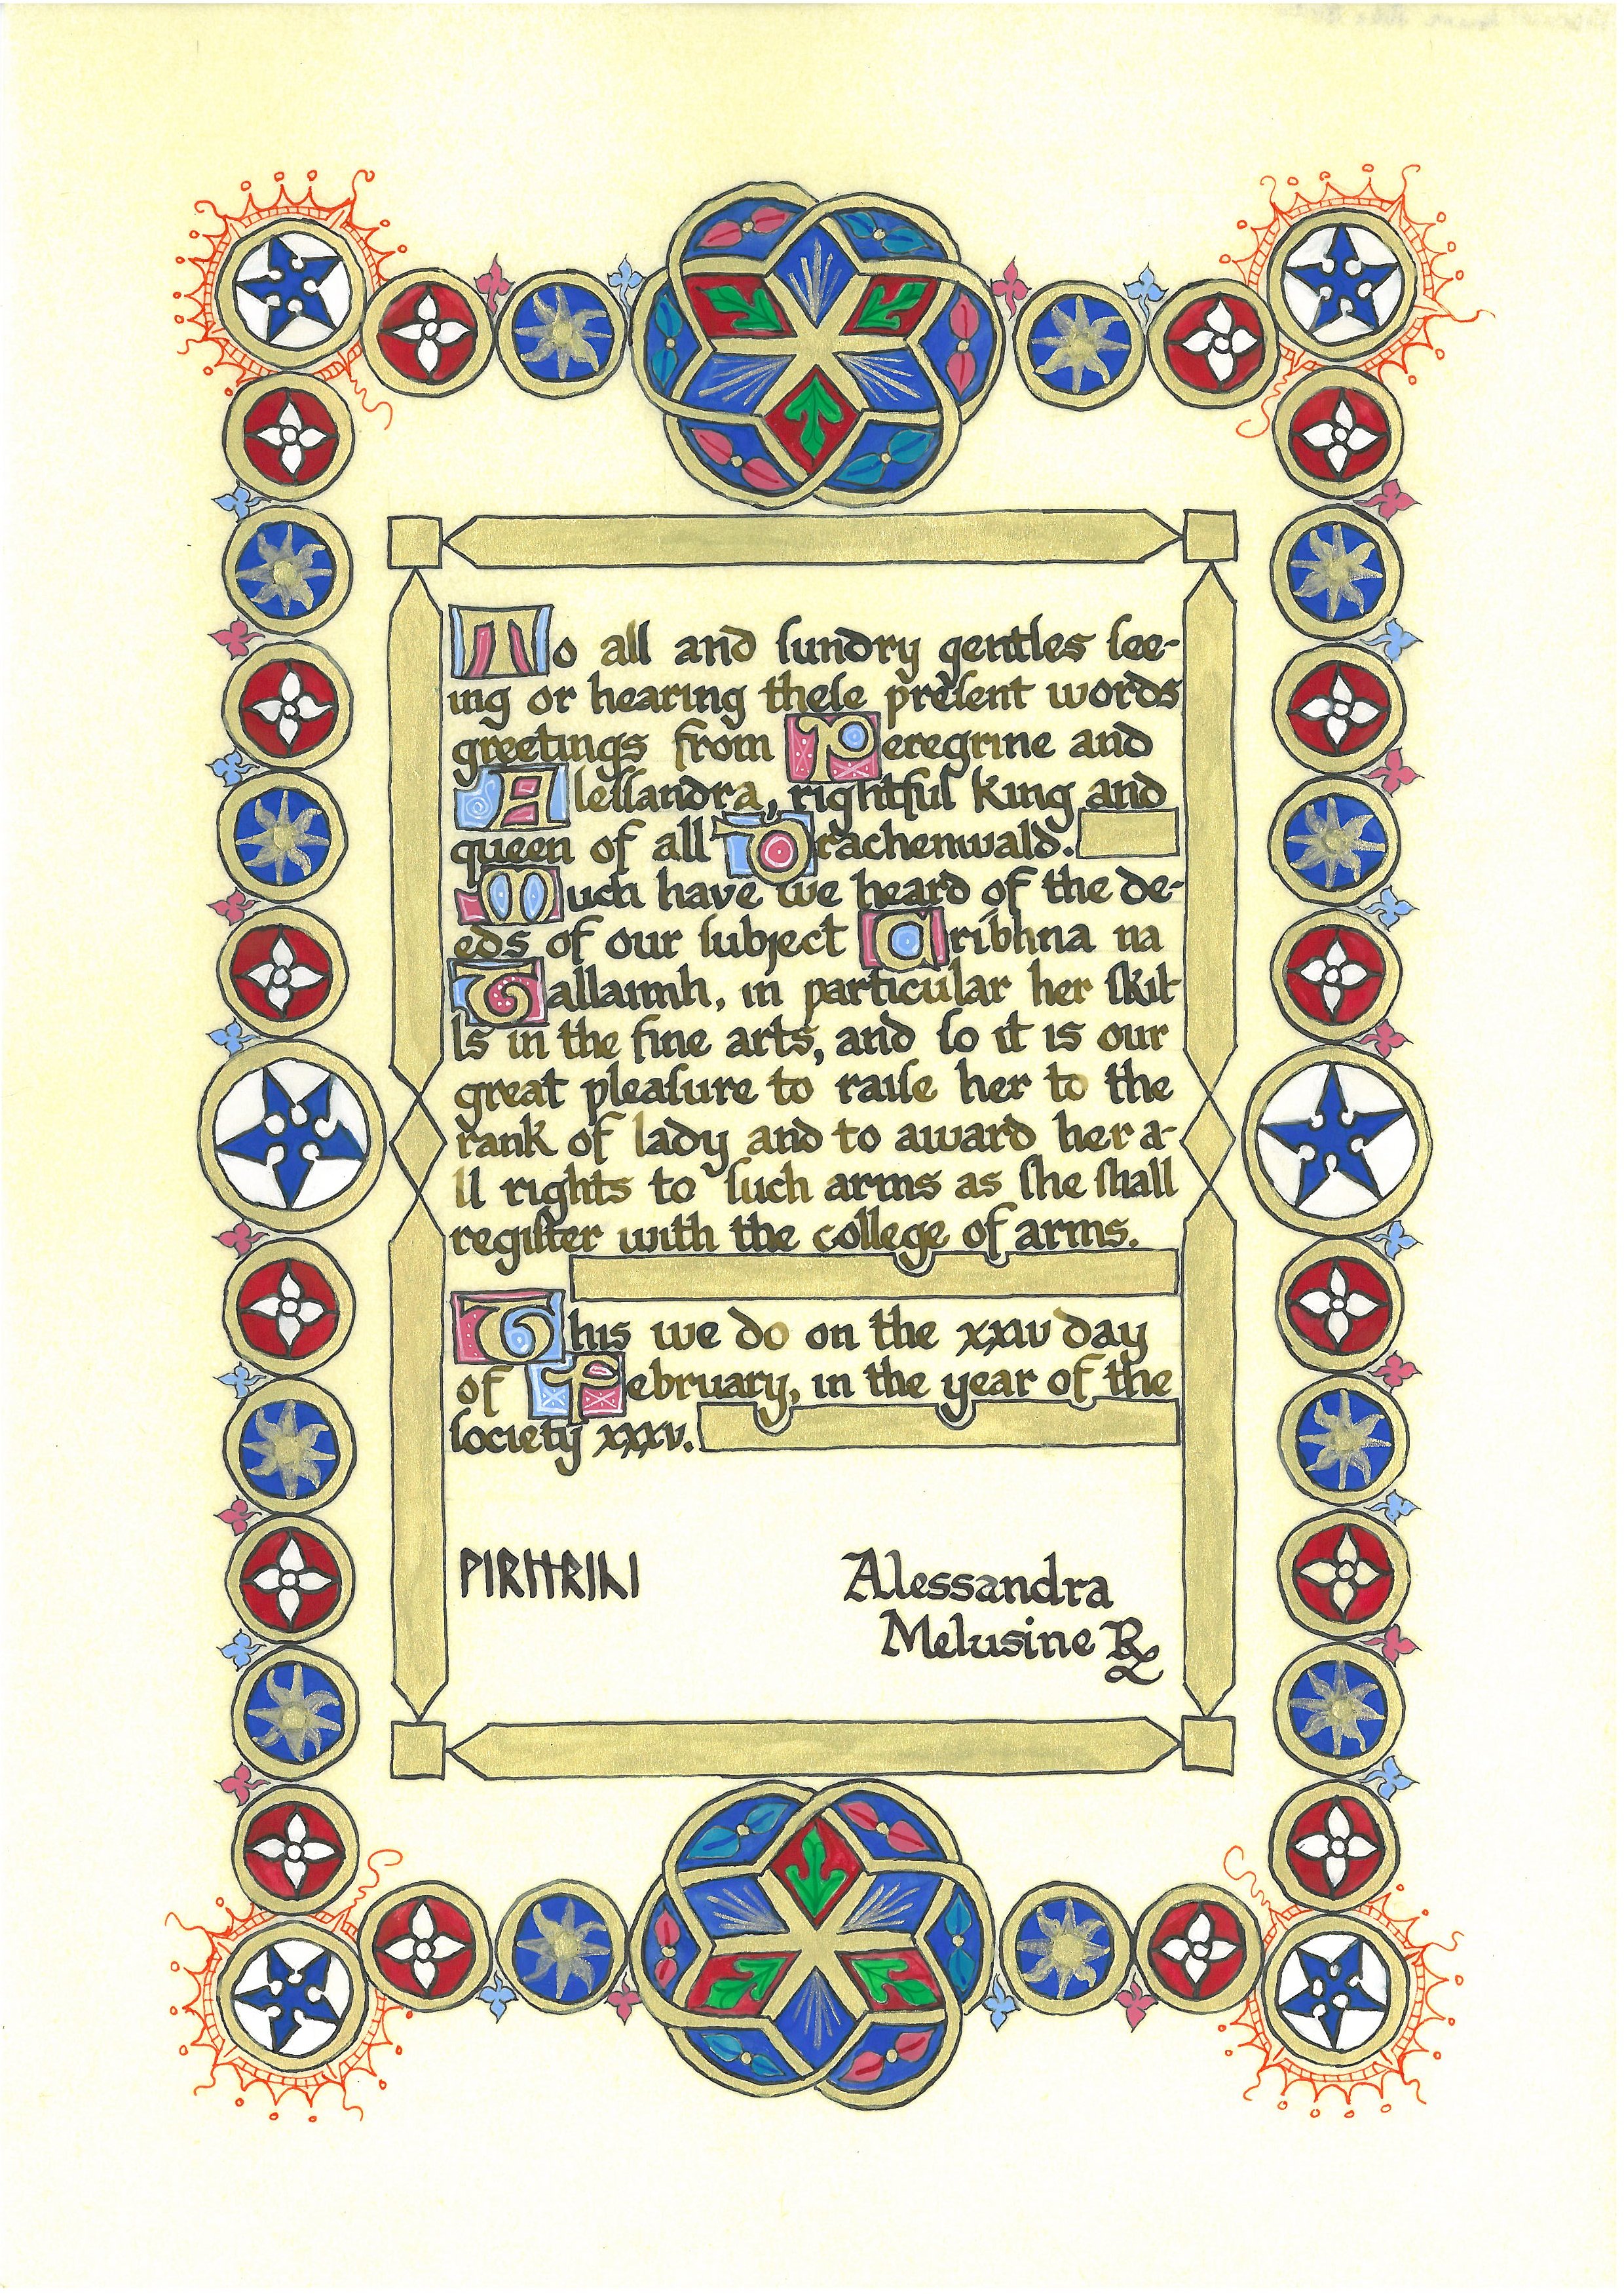 To all and ſundry gentles ſee-
ing or hearing theſe preſent words
greetings from Peregrine and
Aleſſandra, rightful king and
queen of all Drachenwald.
Much have we heard of the de-
eds of our ſubject Aribhna na
Tallaimh, in particular her ſkil-
ls in the fine arts, and ſo it is our
great pleaſure to raiſe her to the
rank of lady and to award her a-
ll rights to ſuch arms as ſhe ſhall
regiſter with the college of arms.
This we do on the xxiv day
of February, in the year of the
ſociety xxxv.
Alessandra
Melusine R